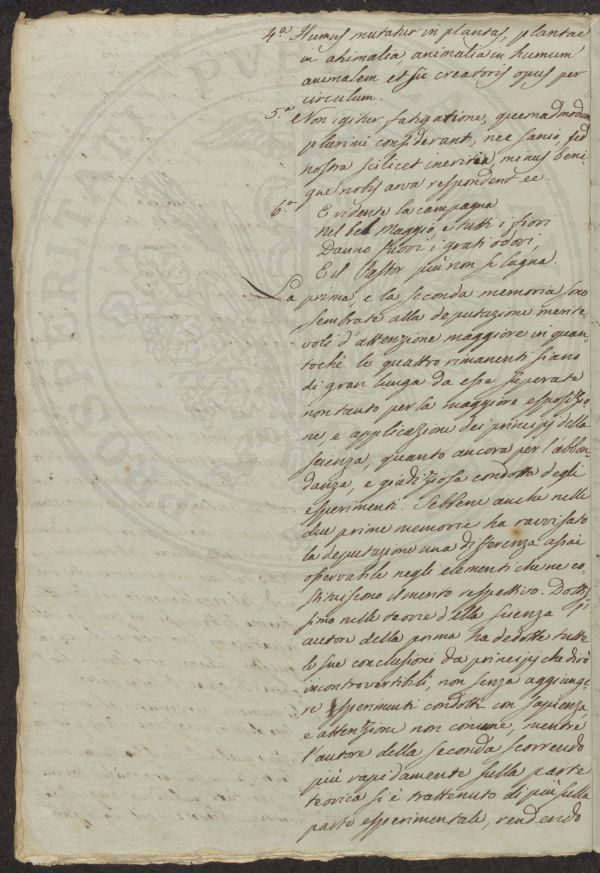 4.° Humus mutatur in plantas, plantae
in animalia, animalia in humum
animalem et sic creatoris opus per
circulum.
5.° Non igitur fatigatione, quemadmodum
plurimi considerant, nec senio, sed
nostra scilicet inertia, minus beni-
gne nobis arva respondent ec.
6.° E ridente la campagna
Nel bel Maggio, e tutti i fiori
Danno fuori i grati odori,
E il Pastor più non si lagna.
La prima, e la seconda memoria sono
sembrate alla deputazione merite-
voli d'attenzione maggiore in quan-
tochè le quattro rimanenti siano
di gran lunga da esse superate
non tanto per la maggiore esposizio-
ne e applicazione dei principj della
scienza, quanto ancora per l'abbon-
danza, e giudiziosa condotta degli
esperimenti. Sebbene anche nelle
due prime memorie ha ravvisato
la deputazione una differenza assai
osservabile negli elementi che ne co-
stituiscono il merito respettivo. Dottis-
simo nelle teorie della scienza l'
autore della prima ha dedotte tutte
le sue conclusioni da principj che dirò
incontrovertibili, non senza aggiunge-
re esperimenti condotti con sapienza
e attenzione non comune, mentre
l'autore della seconda scorrendo
più rapidamente sulla parte
teorica si è trattenuto di più sulla
parte esperimentale, rendendo
PROSPERITATI PUBL